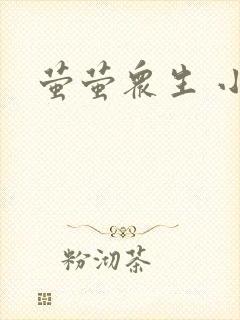 萤萤众生 小
粉沏茶